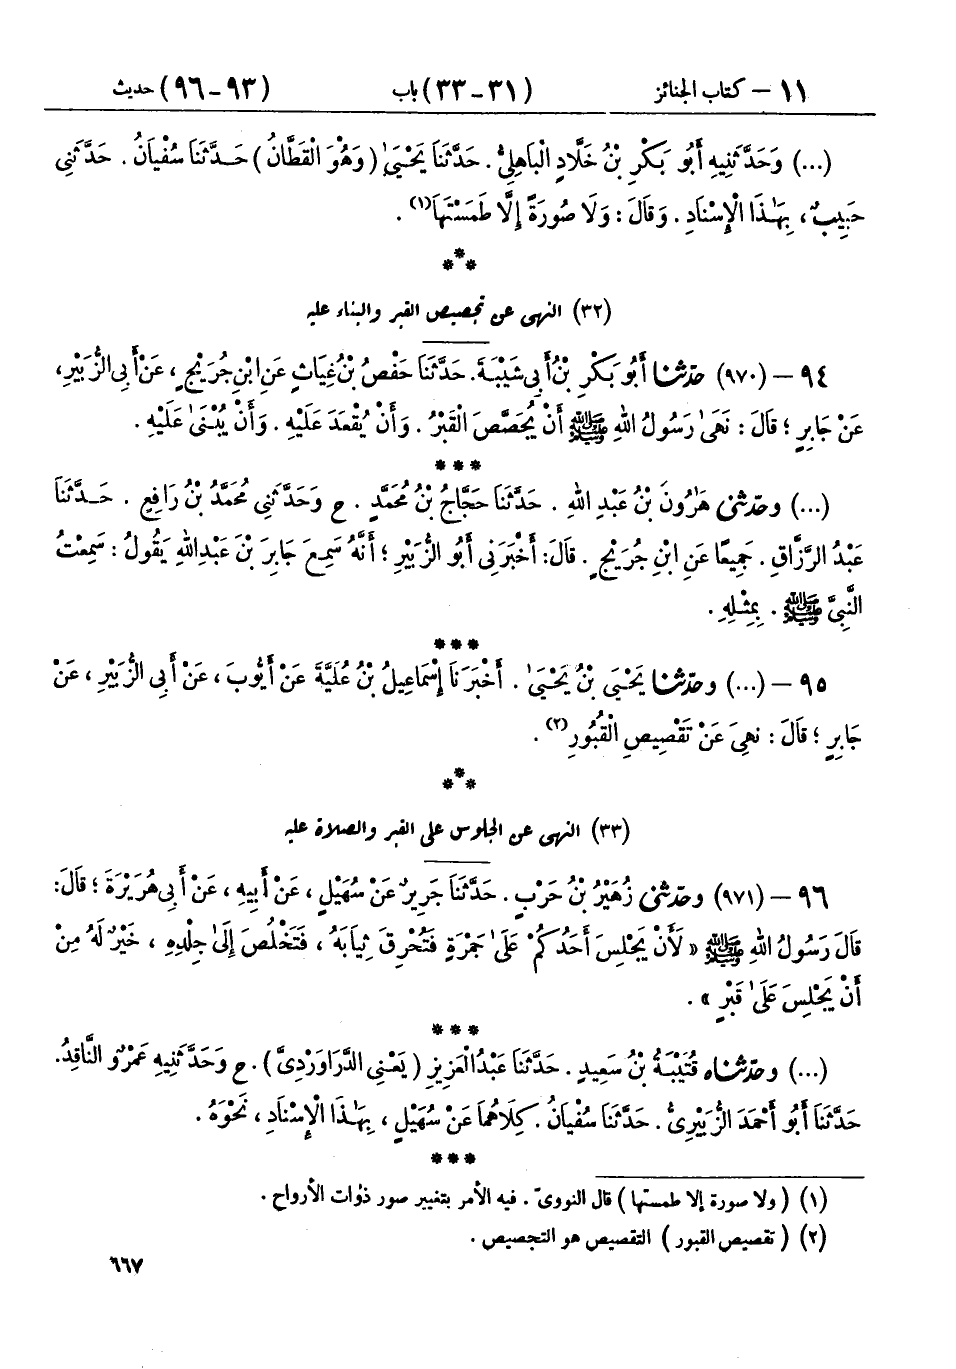 ١١ – كتاب الجنائز (٣١-٣٣) باب (٩٣-٩٦) حديث
(...) وَحَدَّثَنِيهِ أَبُو بَكْرِ بْنُ خَلَّادٍ الْبَاهِلِيُّ . حَدَّثَنَا يَحْيَىٰ (وَهُوَ الْقَطَّانُ) حَدَّثَنَا سُفْيَانُ . حَدَّثَنِي
حَبِيبٌ ، بِهَٰذَا الْإِسْنَادِ . وَقَالَ : وَلَا صُورَةً إِلَّا طَمَسْتَهَا(١) .
***
(٣٢) النهى عن تجصيص القبر والبناء عليه
٩٤ – (٩٧٠) حدّثنا أَبُو بَكْرِ بْنُ أَبِي شَيْبَةَ. حَدَّثَنَا حَفْصُ بْنُ غِيَاثٍ عَنِ ابْنِ جُرَيْجٍ ، عَنْ أَبِي الزُّبَيْرِ،
عَنْ جَابِرٍ ؛ قَالَ : نَهَىٰ رَسُولُ اللهِ ﷺ أَنْ يُجَصَّصَ الْقَبْرُ . وَأَنْ يُقْعَدَ عَلَيْهِ . وَأَنْ يُبْنَىٰ عَلَيْهِ .
***
(...) وحدّثنى هَٰرُونَ بْنُ عَبْدِ اللهِ . حَدَّثَنَا حَجَّاجُ بْنُ مُحَمَّدٍ . ح وَحَدَّثَنِي مُحَمَّدُ بْنُ رَافِعٍ . حَدَّثَنَا
عَبْدُ الرَّزَّاقِ . جَمِيعًا عَنِ ابْنِ جُرَيْجٍ . قَالَ: أَخْبَرَنِي أَبُو الزُّبَيْرِ ؛ أَنَّهُ سَمِعَ جَابِرَ بْنَ عَبْدِ اللهِ يَقُولُ : سَمِعْتُ
النَّبِيَّ ﷺ . بِمِثْلِهِ .
***
٩٥ – (...) وحدّثنا يَحْيَى بْنُ يَحْيَىٰ . أَخْبَرَنَا إِسْمَاعِيلُ بْنُ عُلَيَّةَ عَنْ أَيُّوبَ ، عَنْ أَبِي الزُّبَيْرِ ، عَنْ
جَابِرٍ ؛ قَالَ : نُهِيَ عَنْ تَقْصِيصِ الْقُبُورِ(٢) .
***
(٣٣) النهى عن الجلوس على القبر والصلاة عليه
٩٦ – (٩٧١) وحدّثنى زُهَيْرُ بْنُ حَرْبٍ . حَدَّثَنَا جَرِيرٌ عَنْ سُهَيْلٍ ، عَنْ أَبِيهِ ، عَنْ أَبِي هُرَيْرَةَ ؛ قَالَ:
قَالَ رَسُولُ اللهِ ﷺ « لَأَنْ يَجْلِسَ أَحَدُكُمْ عَلَىٰ جَمْرَةٍ فَتُحْرِقَ ثِيَابَهُ ، فَتَخْلُصَ إِلَىٰ جِلْدِهِ ، خَيْرٌ لَهُ مِنْ
أَنْ يَجْلِسَ عَلَىٰ قَبْرٍ » .
***
(...) وحدّثناه قُتَيْبَةُ بْنُ سَعِيدٍ . حَدَّثَنَا عَبْدُ الْعَزِيزِ ( يَعْنِي الدَّرَاوَرْدِيَّ ) . ح وَحَدَّثَنِيهِ عَمْرٌو النَّاقِدُ.
حَدَّثَنَا أَبُو أَحْمَدَ الزُّبَيْرِيُّ . حَدَّثَنَا سُفْيَانُ . كِلَاهُمَا عَنْ سُهَيْلٍ ، بِهَٰذَا الْإِسْنَادِ ، نَحْوَهُ .
***
(١) ( ولا صورة إلا طمستها ) قال النووىّ . فيه الأمر بتغيير صور ذوات الأرواح .
(٢) ( تقصيص القبور ) التقصيص هو التجصيص .
٦٦٧